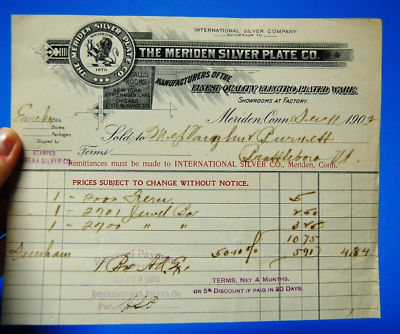 INTERNATIONAL SILVER COMPANY
SUCCESSOR TO
THE MERIDEN SILVER PLATE CO.
THE MERIDEN SILVER PLATE CO.
1870
SALESROOMS
NEW YORK
CHICAGO
MANUFACTURERS OF THE
FINEST QUALITY ELECTRO PLATED WARE.
SHOWROOMS AT FACTORY.
Meriden, Conn. Dec 11 1902
Boxes
Packages
Shipped to
Sold to Vaughn & Burnett
Terms Brattleboro Vt.
STAMPED
EUREKA SILVER CO.
Remittances must be made to INTERNATIONAL SILVER CO., Meriden, Conn.
PRICES SUBJECT TO CHANGE WITHOUT NOTICE.
1 - 2000 Fern 5
1 - 2701 Jewel Box 2 50
1 - 2700 " " 3 25
10 75
50-10% 5 91 4.84
1 Bx
TERMS, NET 4 MONTHS,
OR 5% DISCOUNT IF PAID IN 20 DAYS.